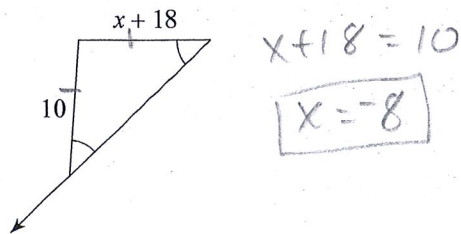 x + 18
10
x+18=10
x=-8